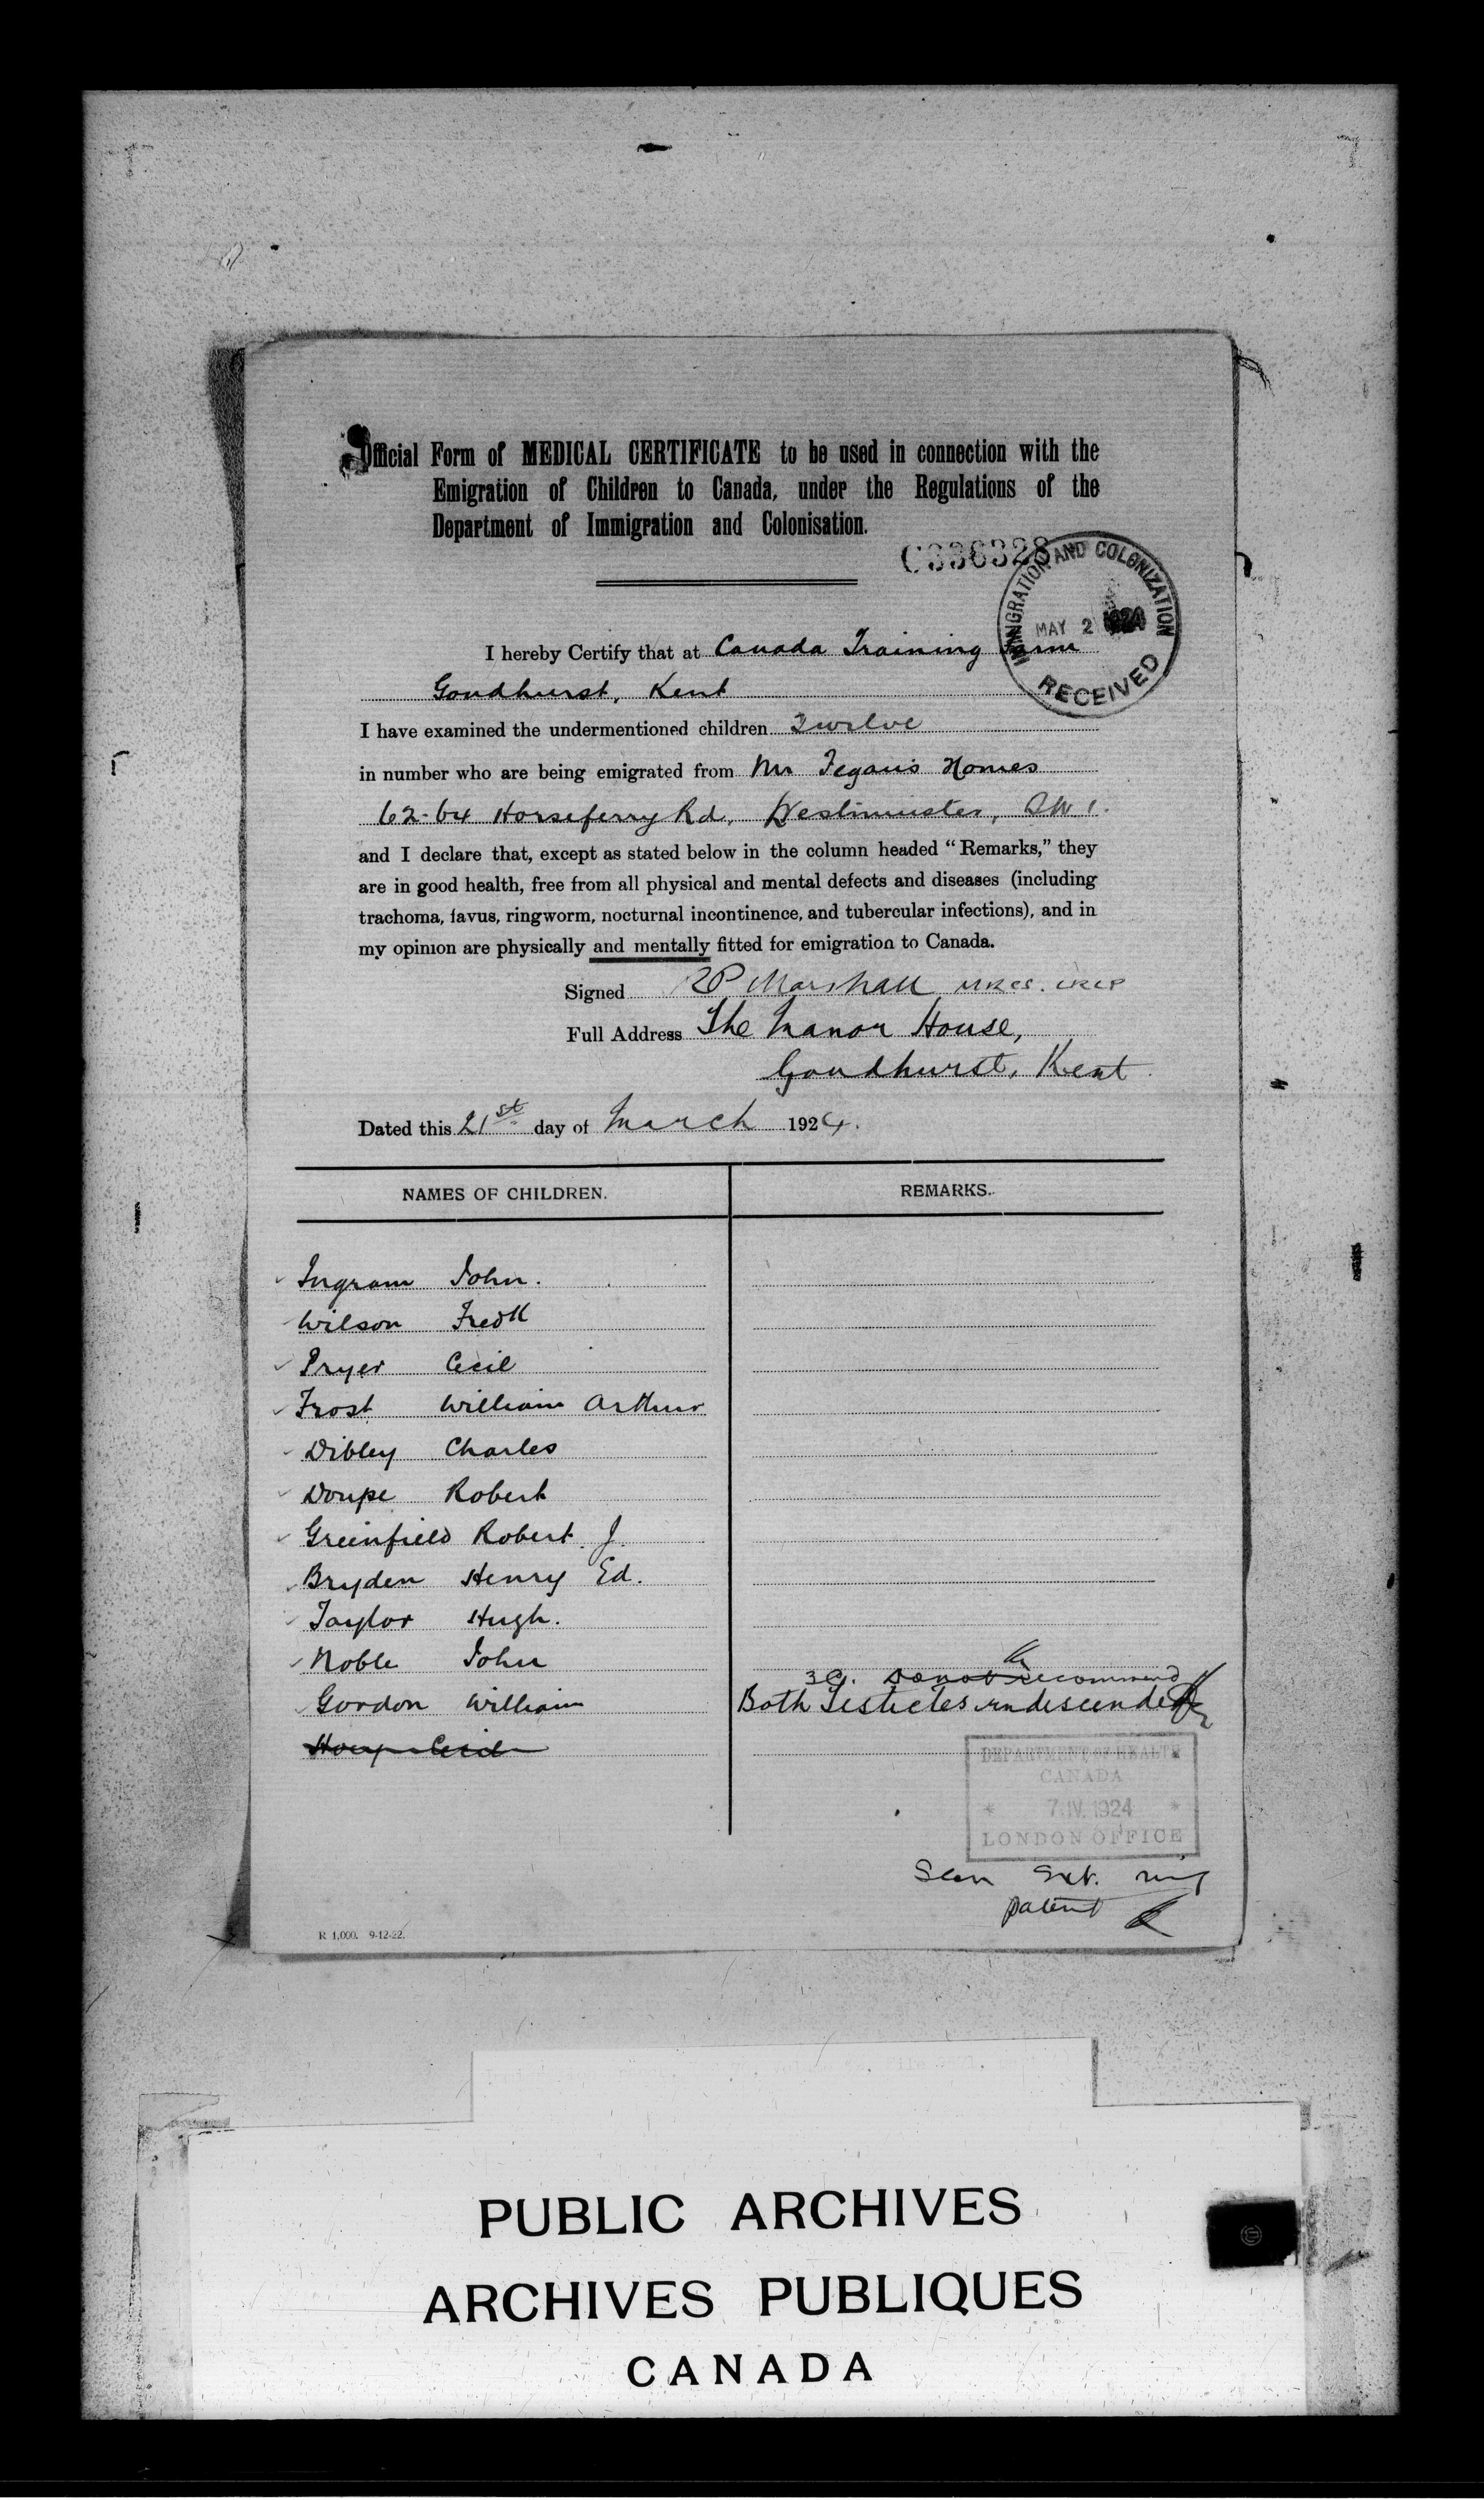 Official Form of MEDICAL CERTIFICATE to be used in connection with the
Emigration of Children to Canada, under the Regulations of the
Department of Immigration and Colonisation.
C336328
IMMIGRATION AND COLONIZATION
MAY 2 1924
RECEIVED
I hereby Certify that at Canada Training Farm
Goudhurst, Kent
I have examined the undermentioned children Twelve
in number who are being emigrated from Mr Fegan's Homes
62-64 Horseferry Rd, Westminster, S.W.1.
and I declare that, except as stated below in the column headed "Remarks," they
are in good health, free from all physical and mental defects and diseases (including
trachoma, favus, ringworm, nocturnal incontinence, and tubercular infections), and in
my opinion are physically and mentally fitted for emigration to Canada.
Signed RP Marshall MRCS. LRCP
Full Address The Manor House,
Goudhurst, Kent.
Dated this 21st day of March 1924.
NAMES OF CHILDREN. REMARKS.
Ingram John.
Wilson Fredk
Pryer Cecil
Frost William Arthur
Dibley Charles
Doupe Robert
Greenfield Robert J.
Bryden Henry Ed.
Taylor Hugh.
Noble John
Do not recommend
Gordon William Both Testicles undescended
Cecil
DEPARTMENT OF HEALTH
CANADA
* 7.IV.1924 *
LONDON OFFICE
Seen Ext. ring
patent
R 1,000. 9-12-22.
PUBLIC ARCHIVES
ARCHIVES PUBLIQUES
CANADA